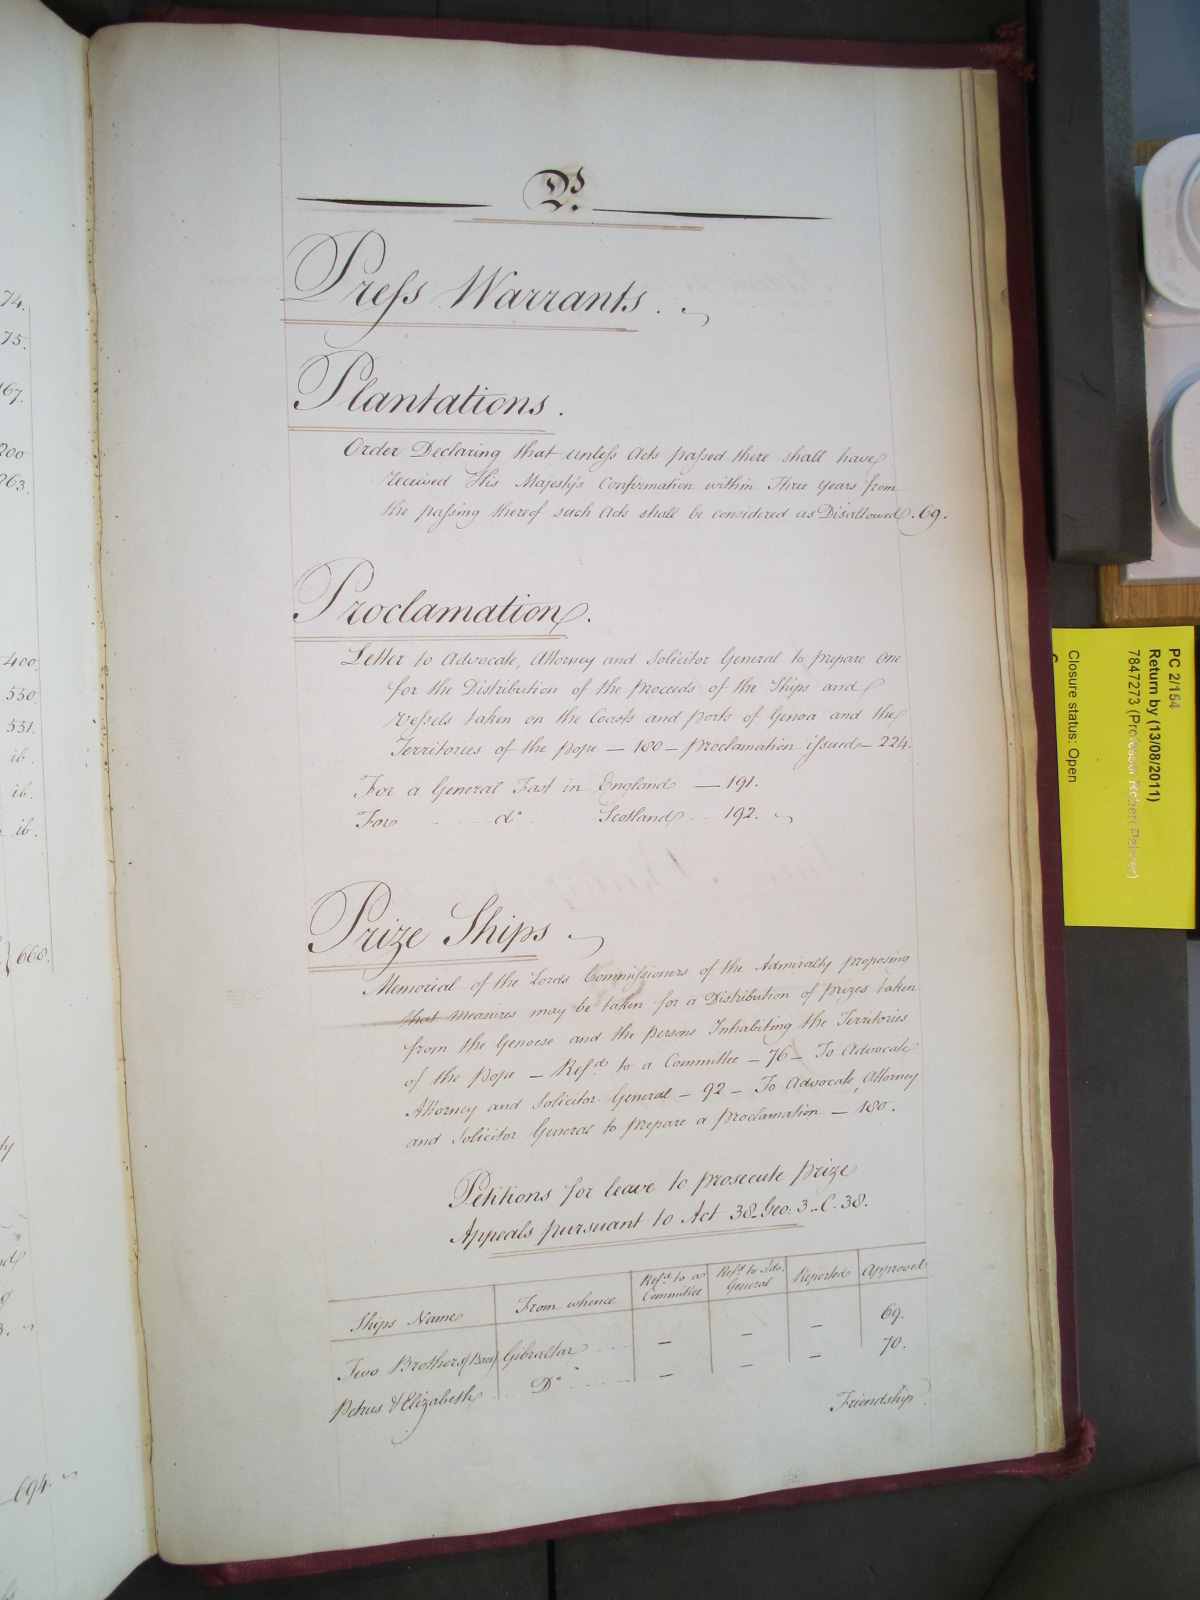 74.
75.
167.
200
263.
400.
550.
551.
ib.
ib.
ib.
668.
694.
P.
Press Warrants.
Plantations.
Order Declaring that unless Acts passed there shall have
received His Majesty's Confirmation within Three years from
the passing thereof such Acts shall be considered as Disallowed. 69.
Proclamation.
Letter to Advocate, Attorney and Solicitor General to prepare one
for the Distribution of the proceeds of the Ships and
Vessels taken on the Coasts and ports of Genoa and the
Territories of the Pope — 180 — proclamation issued — 224.
For a General Fast in England — 191.
For do Scotland — 192.
Prize Ships
Memorial of the Lords Commissioners of the Admiralty proposing
that Measures may be taken for a Distribution of prizes taken
from the Genoese and the persons Inhabiting the Territories
of the Pope — Refd to a Committee — 76 — To Advocate
Attorney and Solicitor General — 92 — To Advocate, Attorney
and Solicitor General to prepare a proclamation — 180.
Petitions for leave to prosecute prize
Appeals pursuant to Act 38. Geo: 3. C. 38.
Ships Name From whence Refd to a Committee Refd to Adv. General Reported Approved
Two Brothers (Baes) Gibraltar — — — 69.
Petrus & Elizabeth Do — — — 70.
Friendship
PC 2/154
Return by (13/08/2011)
7847273 (Professor Robert Palmer)
Closure status: Open